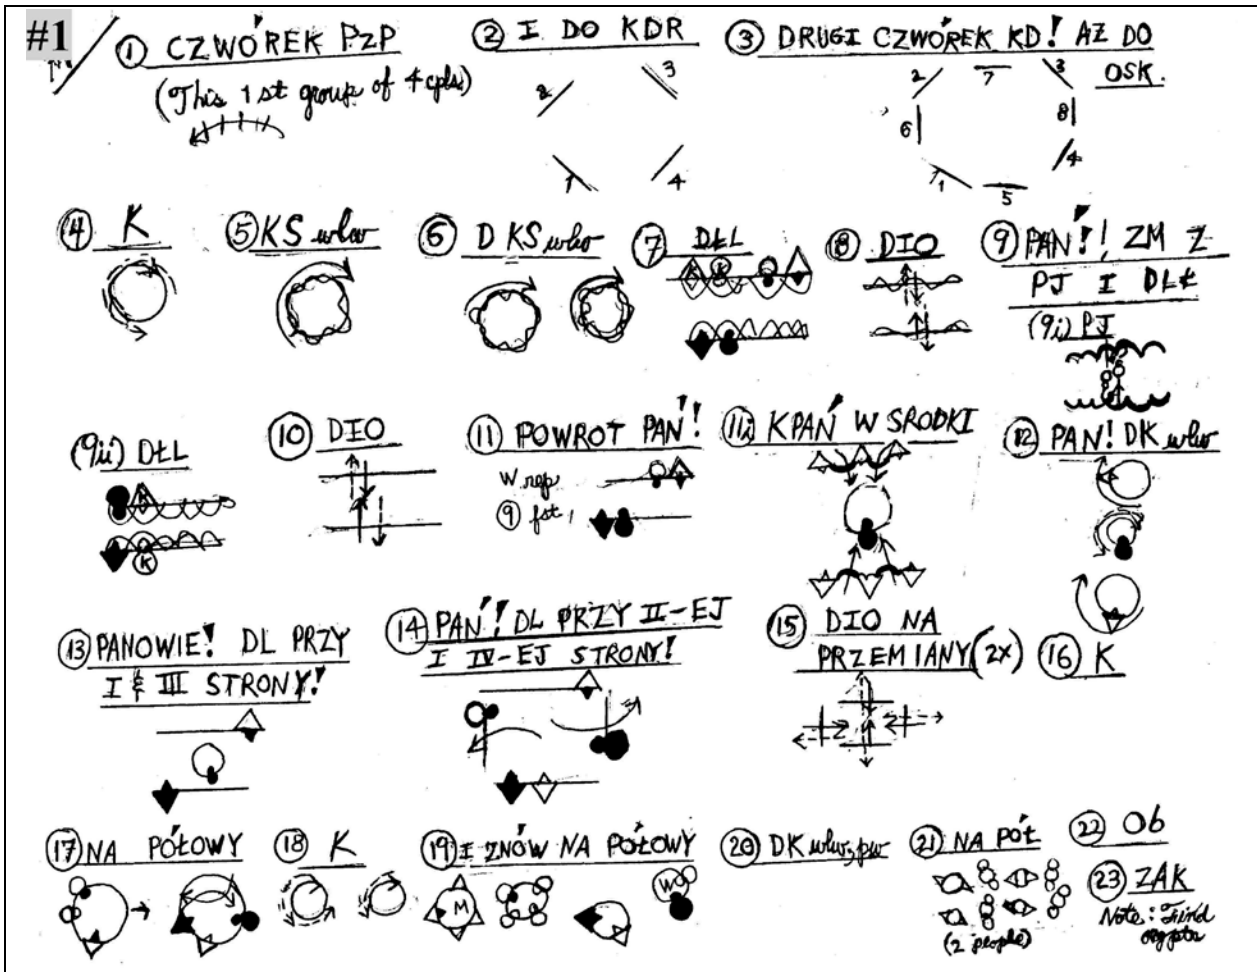 #1
① CZWÓREK PZP
(This 1st group of 4 cpls)
② I DO KDR
2
3
1
4
③ DRUGI CZWÓREK KD! AŻ DO
OSK.
2
7
3
6
8
1
5
4
④ K
⑤ KS wlw
⑥ D KS wlw
⑦ DŁL
K K
⑧ DIO
⑨ PAŃ!! ZM Z
PJ I DŁŁ
(9i) PJ
(9ii) DŁL
K
K
⑩ DIO
⑪ POWRÓT PAŃ!
W rep
⑨ fst
11i KPAŃ W SRODKI
⑫ PAN! DK wlw
⑬ PANOWIE! DL PRZY
I & III STRONY!
⑭ PAŃ! DL PRZY II-EJ
I IV-EJ STRONY!
⑮ DIO NA
PRZEMIANY (2x)
⑯ K
⑰ NA PÓŁOWY
⑱ K
⑲ I ZNÓW NA PÓŁOWY
M
W
⑳ DK wlw, pw
㉑ NA PÓŁ
(2 people)
㉒ Ob
㉓ ZAK
Note: Find